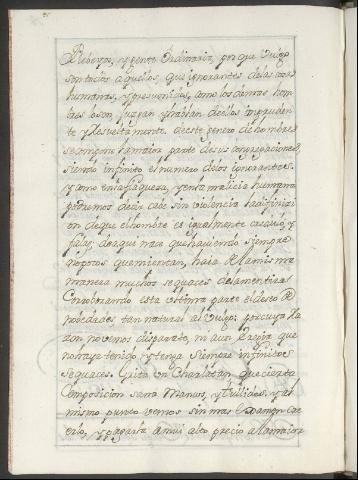 Plebeyos, y gente Ordinaria, porque Vulgo
son todos aquellos, que ignorantes de las cosas
humanas, y presumidos, como los demas hom
bres osan juzgan y hablan de ellos imprudent
te y Resueltamente. de este genero de hombres
se compone la maior parte de sus congregaciones,
siendo infinito el numero de los ignorantes.
y como en la flaqueza, y en la malicia humana
podremos decir cabe sin violencia la difinizi
on de que el hombre es igualmente creaiuo, y
falaz, de aqui nace que haviendo siempre
no pocos que mientan, haia de la misma
manera muchos sequaces de la mentira.
Corroborando esta Vltima parte el deseo de
nobedades tan natural al Vulgo; por cuya Ra
zon no vemos disparate, ni aun Error que
no haya tenido, y tenga siempre infinitos
sequaces. Grita Vn Charlatan que cierta
Composicion sana Mancos, y tullidos, y al
mismo punto vemos sin mas Examen cre
erlo, y pagarla a mui alto precio a la maior